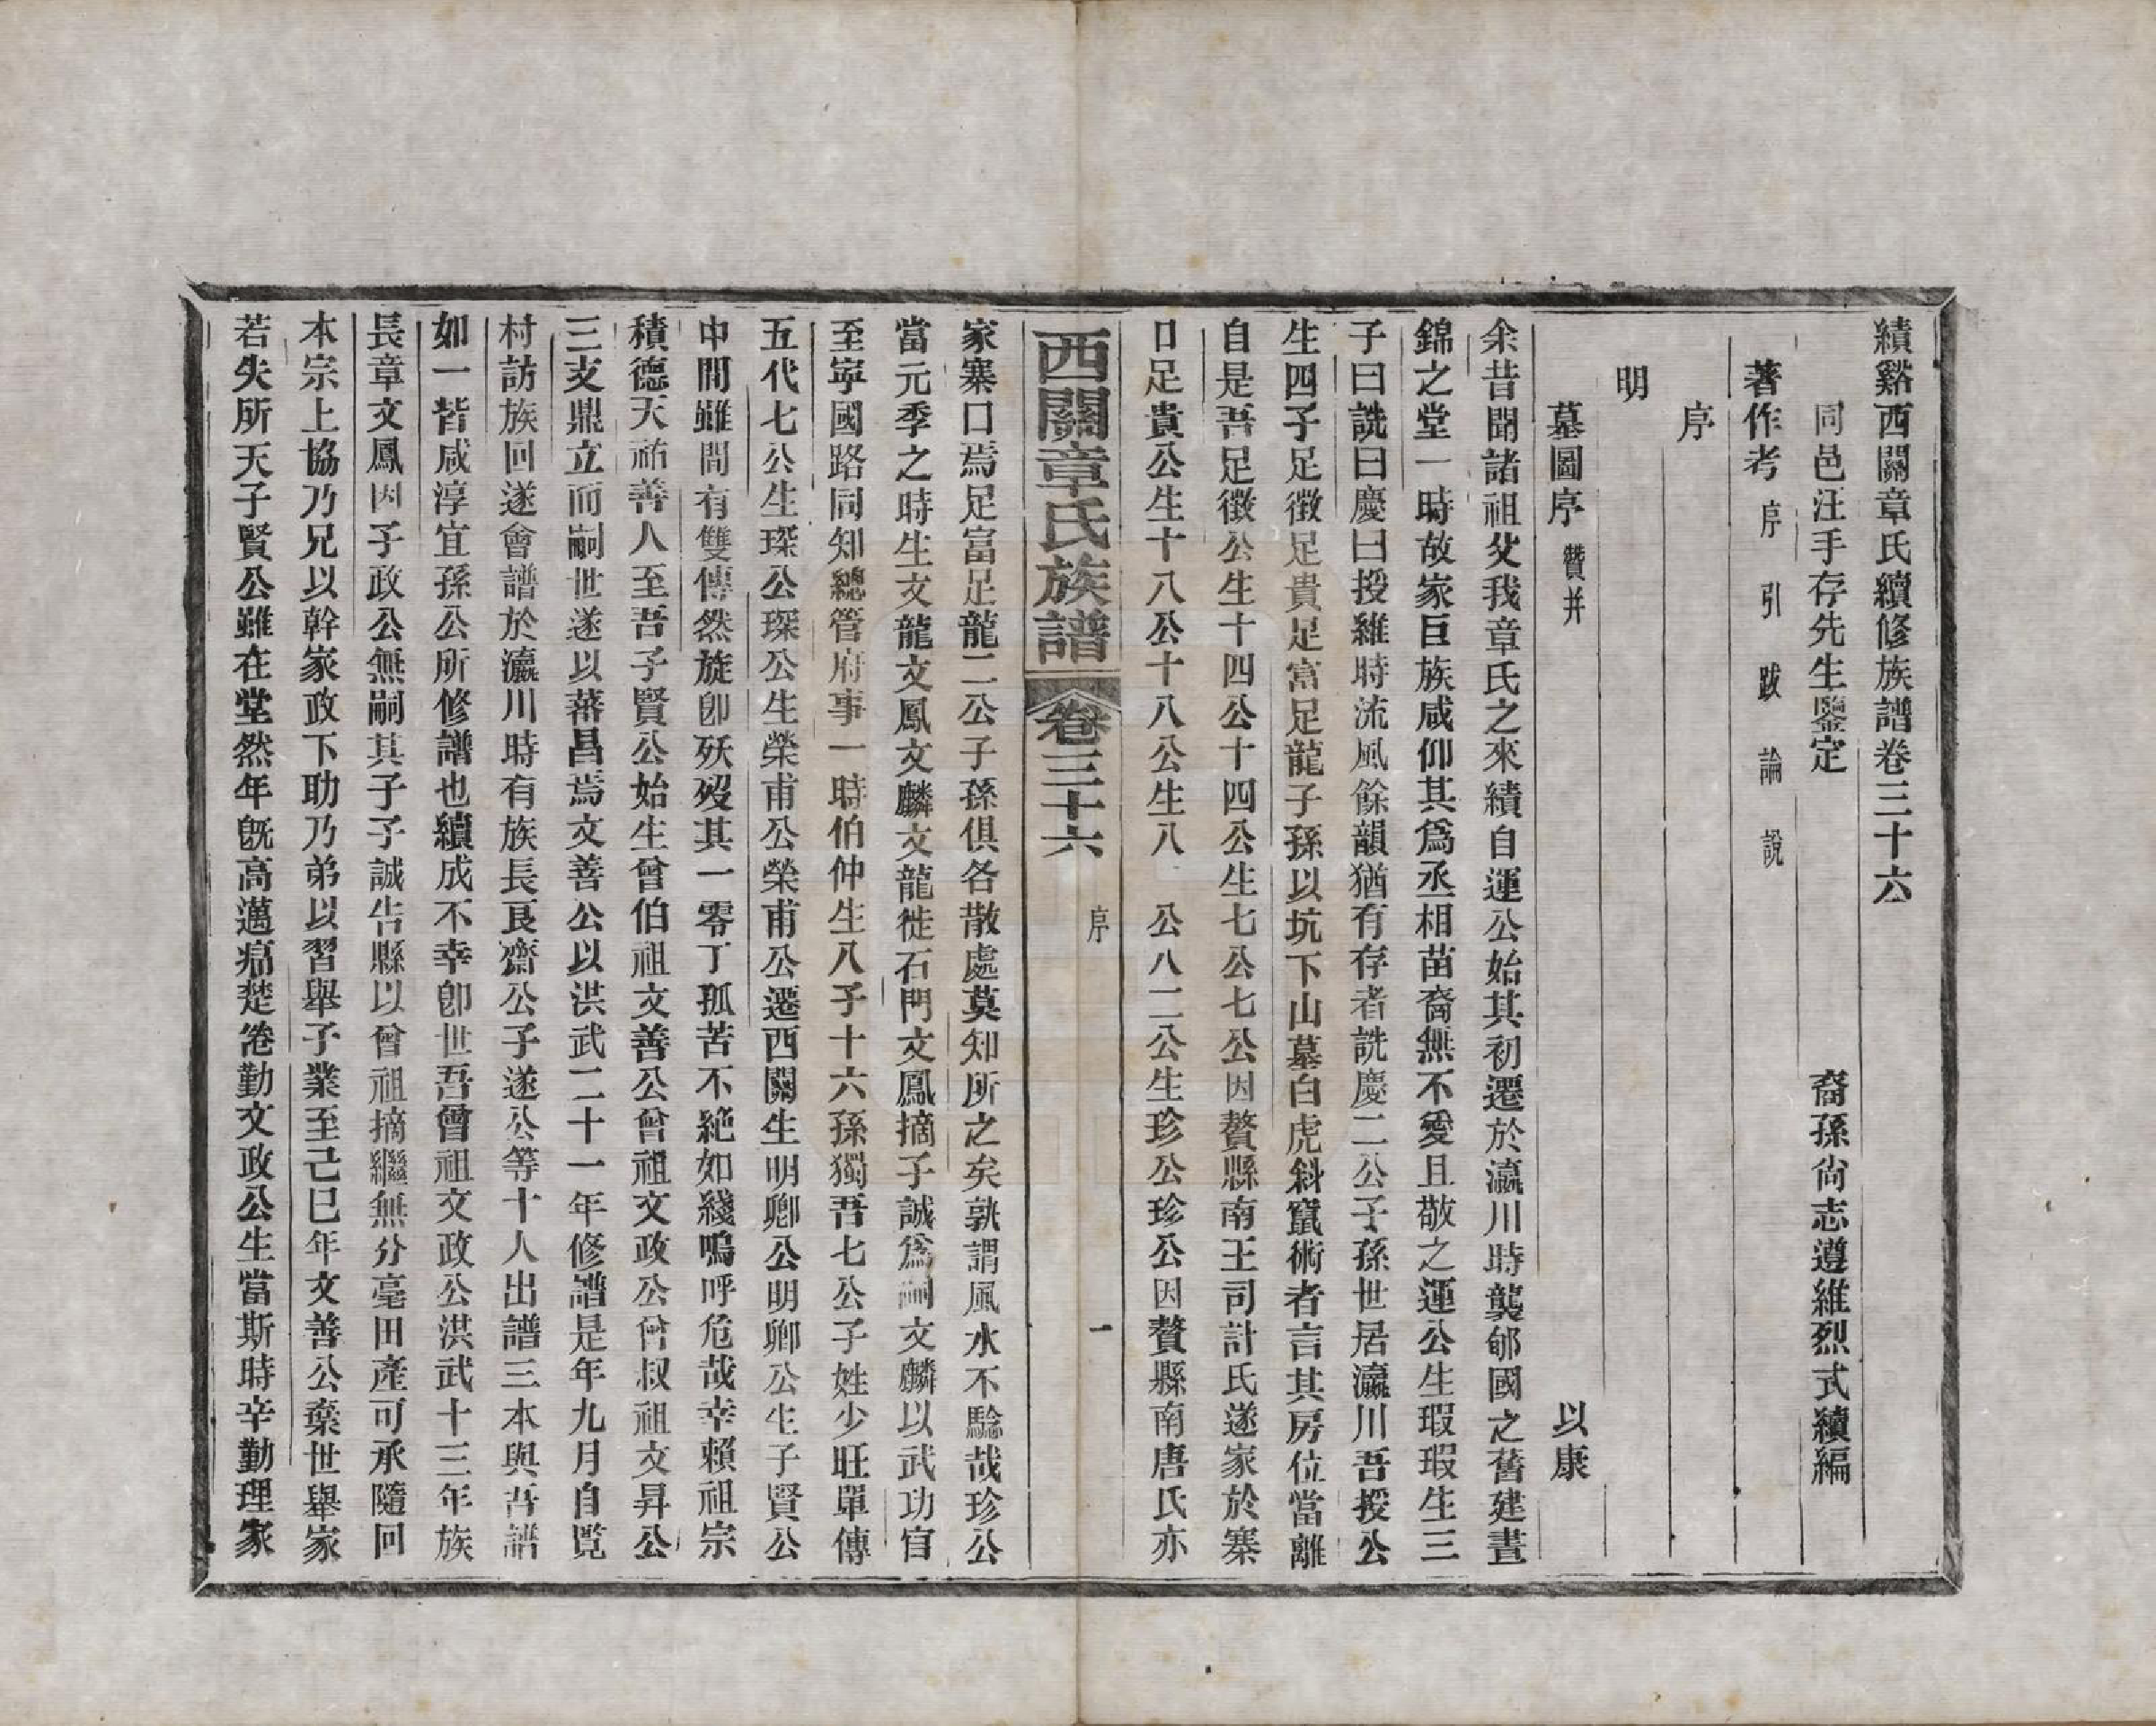 績谿西關章氏續修族譜卷三十六
同邑汪手存先生鑒定　裔孫尙志遵維烈式續編
著作考 序 引 跋 論 說
序
明
墓圖序 贊并　以康
余昔聞諸祖父我章氏之來績自運公始其初遷於瀛川時龔郇國之舊建晝
錦之堂一時故家巨族咸仰其爲丞相苗裔無不愛且敬之運公生瑕瑕生三
子曰詵曰慶曰授維時流風餘韻猶有存者詵慶二公子孫世居瀛川吾授公
生四子足徵足貴足富足龍子孫以坑下山墓白虎斜竄術者言其房位當離
自是吾足徵公生十四公十四公生七公七公因贅縣南王司計氏遂家於寨
口足貴公生十八公十八公生八公八二公生珍公珍公因贅縣南唐氏亦
西關章氏族譜　卷三十六　序　一
家寨口焉足富足龍二公子孫俱各散處莫知所之矣孰謂風水不騐哉珍公
當元季之時生文龍文鳳文麟文龍徙石門文鳳摘子誠爲嗣文麟以武功官
至寧國路同知總管府事一時伯仲生八子十六孫獨吾七公子姓少旺單傳
五代七公生琛公琛公生榮甫公榮甫公遷西關生明卿公明卿公生子賢公
中間雖間有雙傳然旋卽殀歿其一零丁孤苦不絶如綫嗚呼危哉幸賴祖宗
積德天祐善人至吾子賢公始生曾伯祖文善公曾祖文政公曾叔祖文昇公
三支鼎立而嗣世遂以蕃昌焉文善公以洪武二十一年修譜是年九月自覧
村訪族回遂會譜於瀛川時有族長艮齋公子遂公等十人出譜三本與吾譜
如一皆咸淳宜孫公所修譜也續成不幸卽世吾曾祖文政公洪武十三年族
長章文鳳因子政公無嗣其子子誠告縣以曾祖摘繼無分毫田產可承隨回
本宗上協乃兄以幹家政下助乃弟以習舉子業至己巳年文善公棄世舉家
若失所天子賢公雖在堂然年旣高邁痛楚卷勤文政公生當斯時辛勤理家